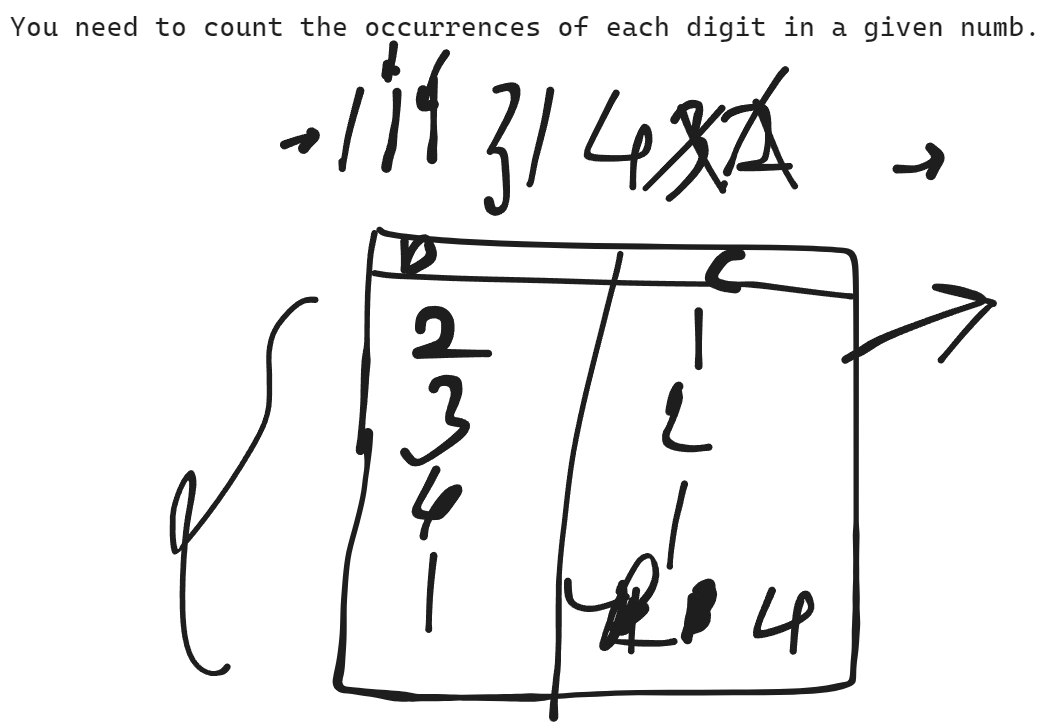 You need to count the occurrences of each digit in a given numb.
→ 1 1 1 3 1 4 3 2 →
D C
2 1
3 2
4 1
1 4